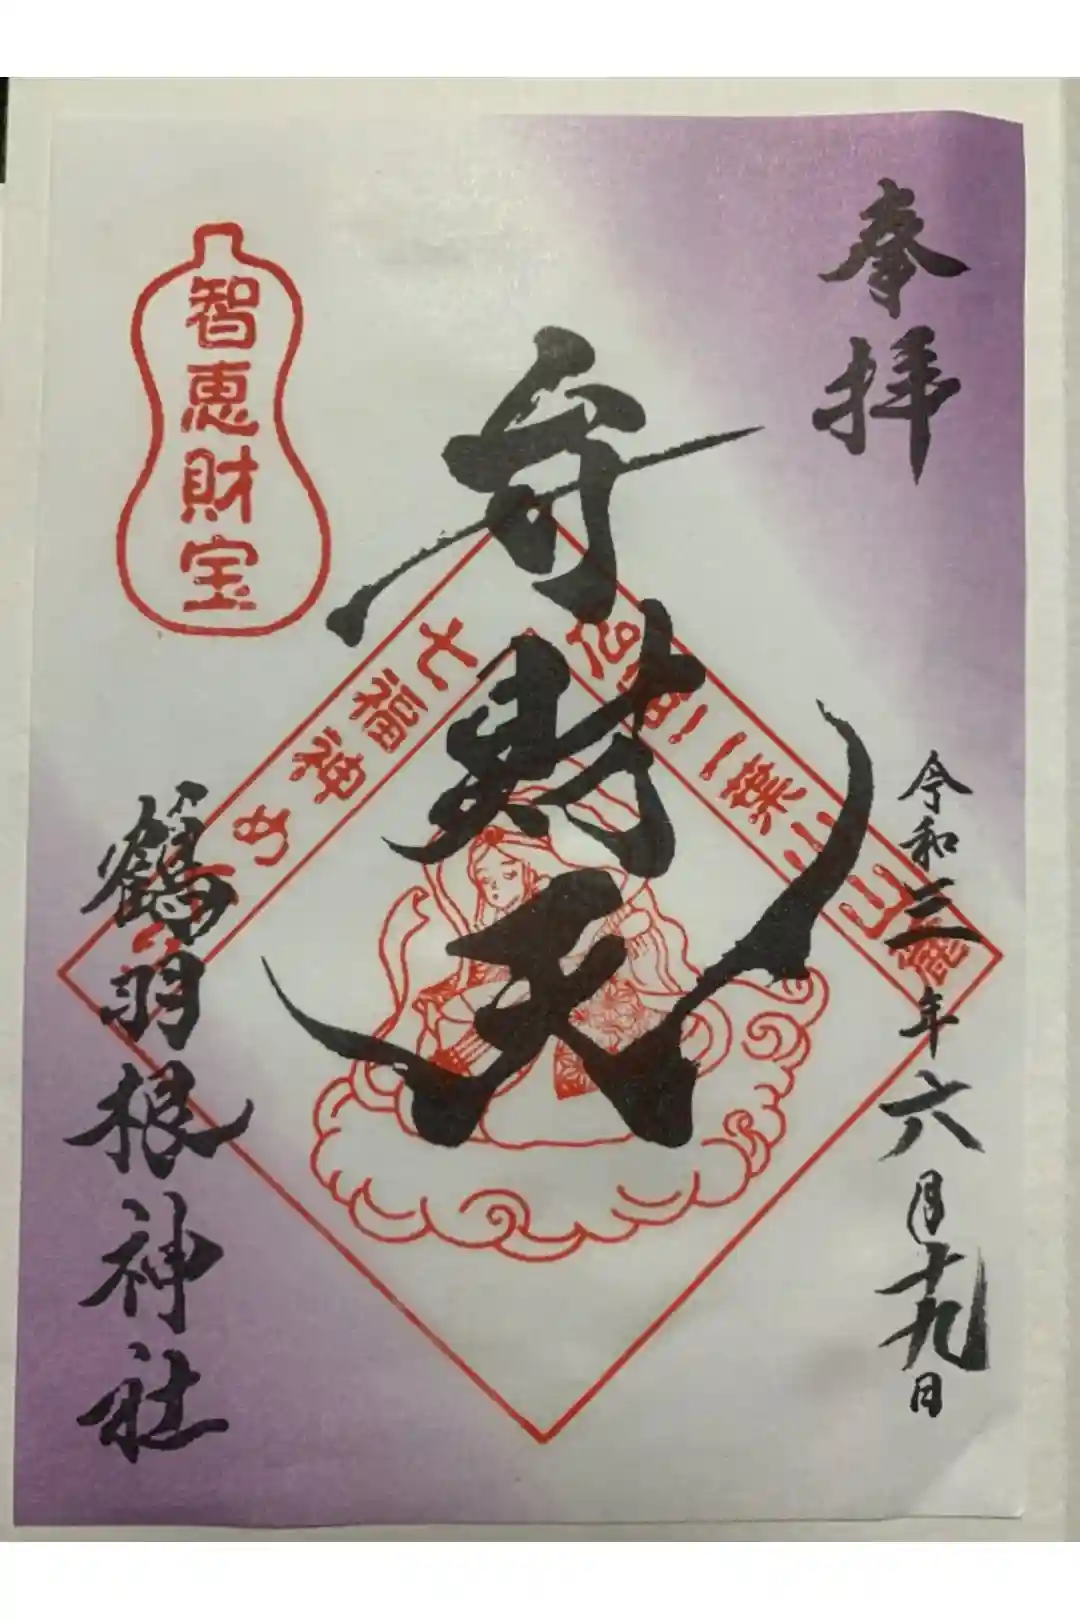 奉拝
令和三年六月十九日
弁財天
智恵財宝
七福神め
二葉山
鶴羽根神社